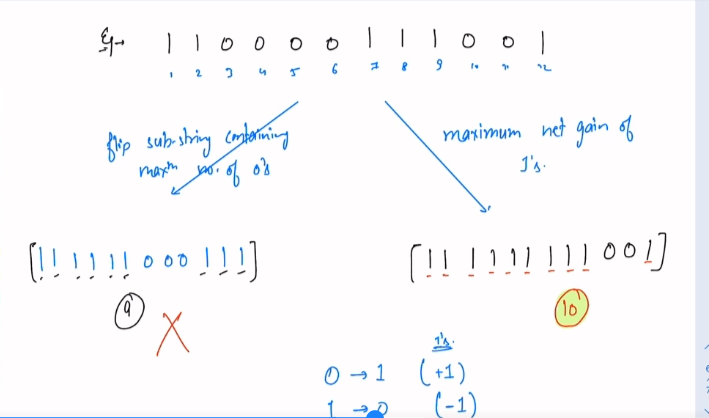 Eg→ 1 1 0 0 0 0 1 1 1 0 0 1
1 2 3 4 5 6 7 8 9 10 11 12
flip sub-string containing
maxm no. of 0's
maximum net gain of
1's.
[1 1 1 1 1 1 0 0 0 1 1 1]
9
X
[1 1 1 1 1 1 1 1 1 0 0 1]
10
1's.
0 → 1 (+1)
1 → 0 (-1)